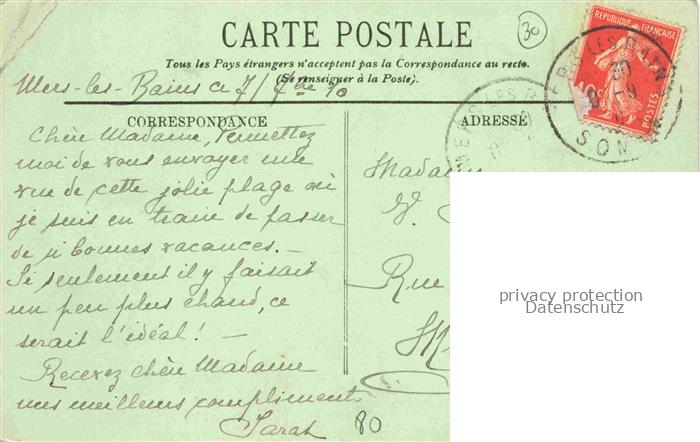 CARTE POSTALE
30
Tous les Pays étrangers n'acceptent pas la Correspondance au recto.
(Se renseigner à la Poste).
Mers-les-Bains ce 7/7bre 10
CORRESPONDANCE
Chère Madame, Permettez
moi de vous envoyer une
vue de cette jolie plage où
je suis en train de passer
de si bonnes vacances. –
Si seulement il y faisait
un peu plus chaud, ce
serait l'idéal! –
Recevez chère Madame
mes meilleurs compliments
Sarah
80
ADRESSÉ
Madame
V.
Rue
RÉPUBLIQUE FRANÇAISE
POSTES
SOM
privacy protection
Datenschutz